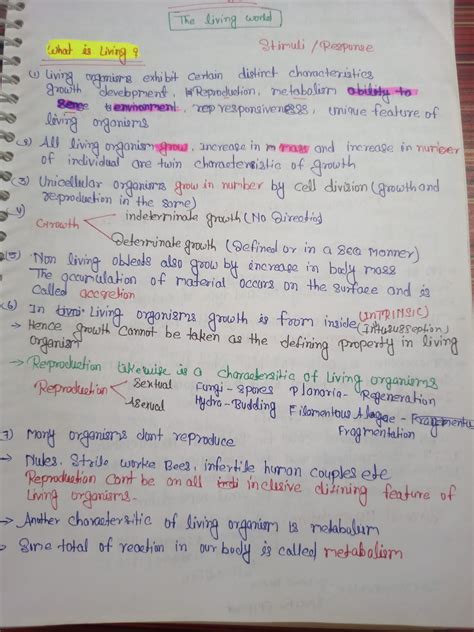 The living world
What is Living ?
Stimuli / Response
(1) Living orgnisms exhibit certain distinct characteristics
growth development, Reproduction, metabolism ability to
environment, rep responsiveness, unique feature of
living organisms
(2) All living organism grow, increase in m mass and increase in number
of individual are twin characteristic of growth
(3) Unicellular organisms grow in number by cell division (growth and
reproduction in the same)
4) Growth
indeterminate growth (No Direction)
Determinate growth (Defined or in a Seq Manner)
(5) Non living obeds also grow by increase in body mass
The accumulation of material occurs on the surface and is
Called accretion
(6) In Living organisms growth is from inside (INTRINSIC)
(Intususseption)
→ Hence growth Cannot be taken as the defining property in living
organism
→ Reproduction likewise is a charactersitic of living organisms
Reproduction
Sextual
Asexual
Fungi - Spores
Planaria - Regeneration
Hydra - Budding
Filamentous Alagae - Fragmenta
Fragmentation
7) Many organisms dont reproduce
→ Mules, Strile worke Bees, infertile human couples etc
Reproduction Cant be an all inclusive difining feature of
Living organisms.
→ Another charactersitic of living organism is metabolism
→ Some total of reaction in our body is called metabolism